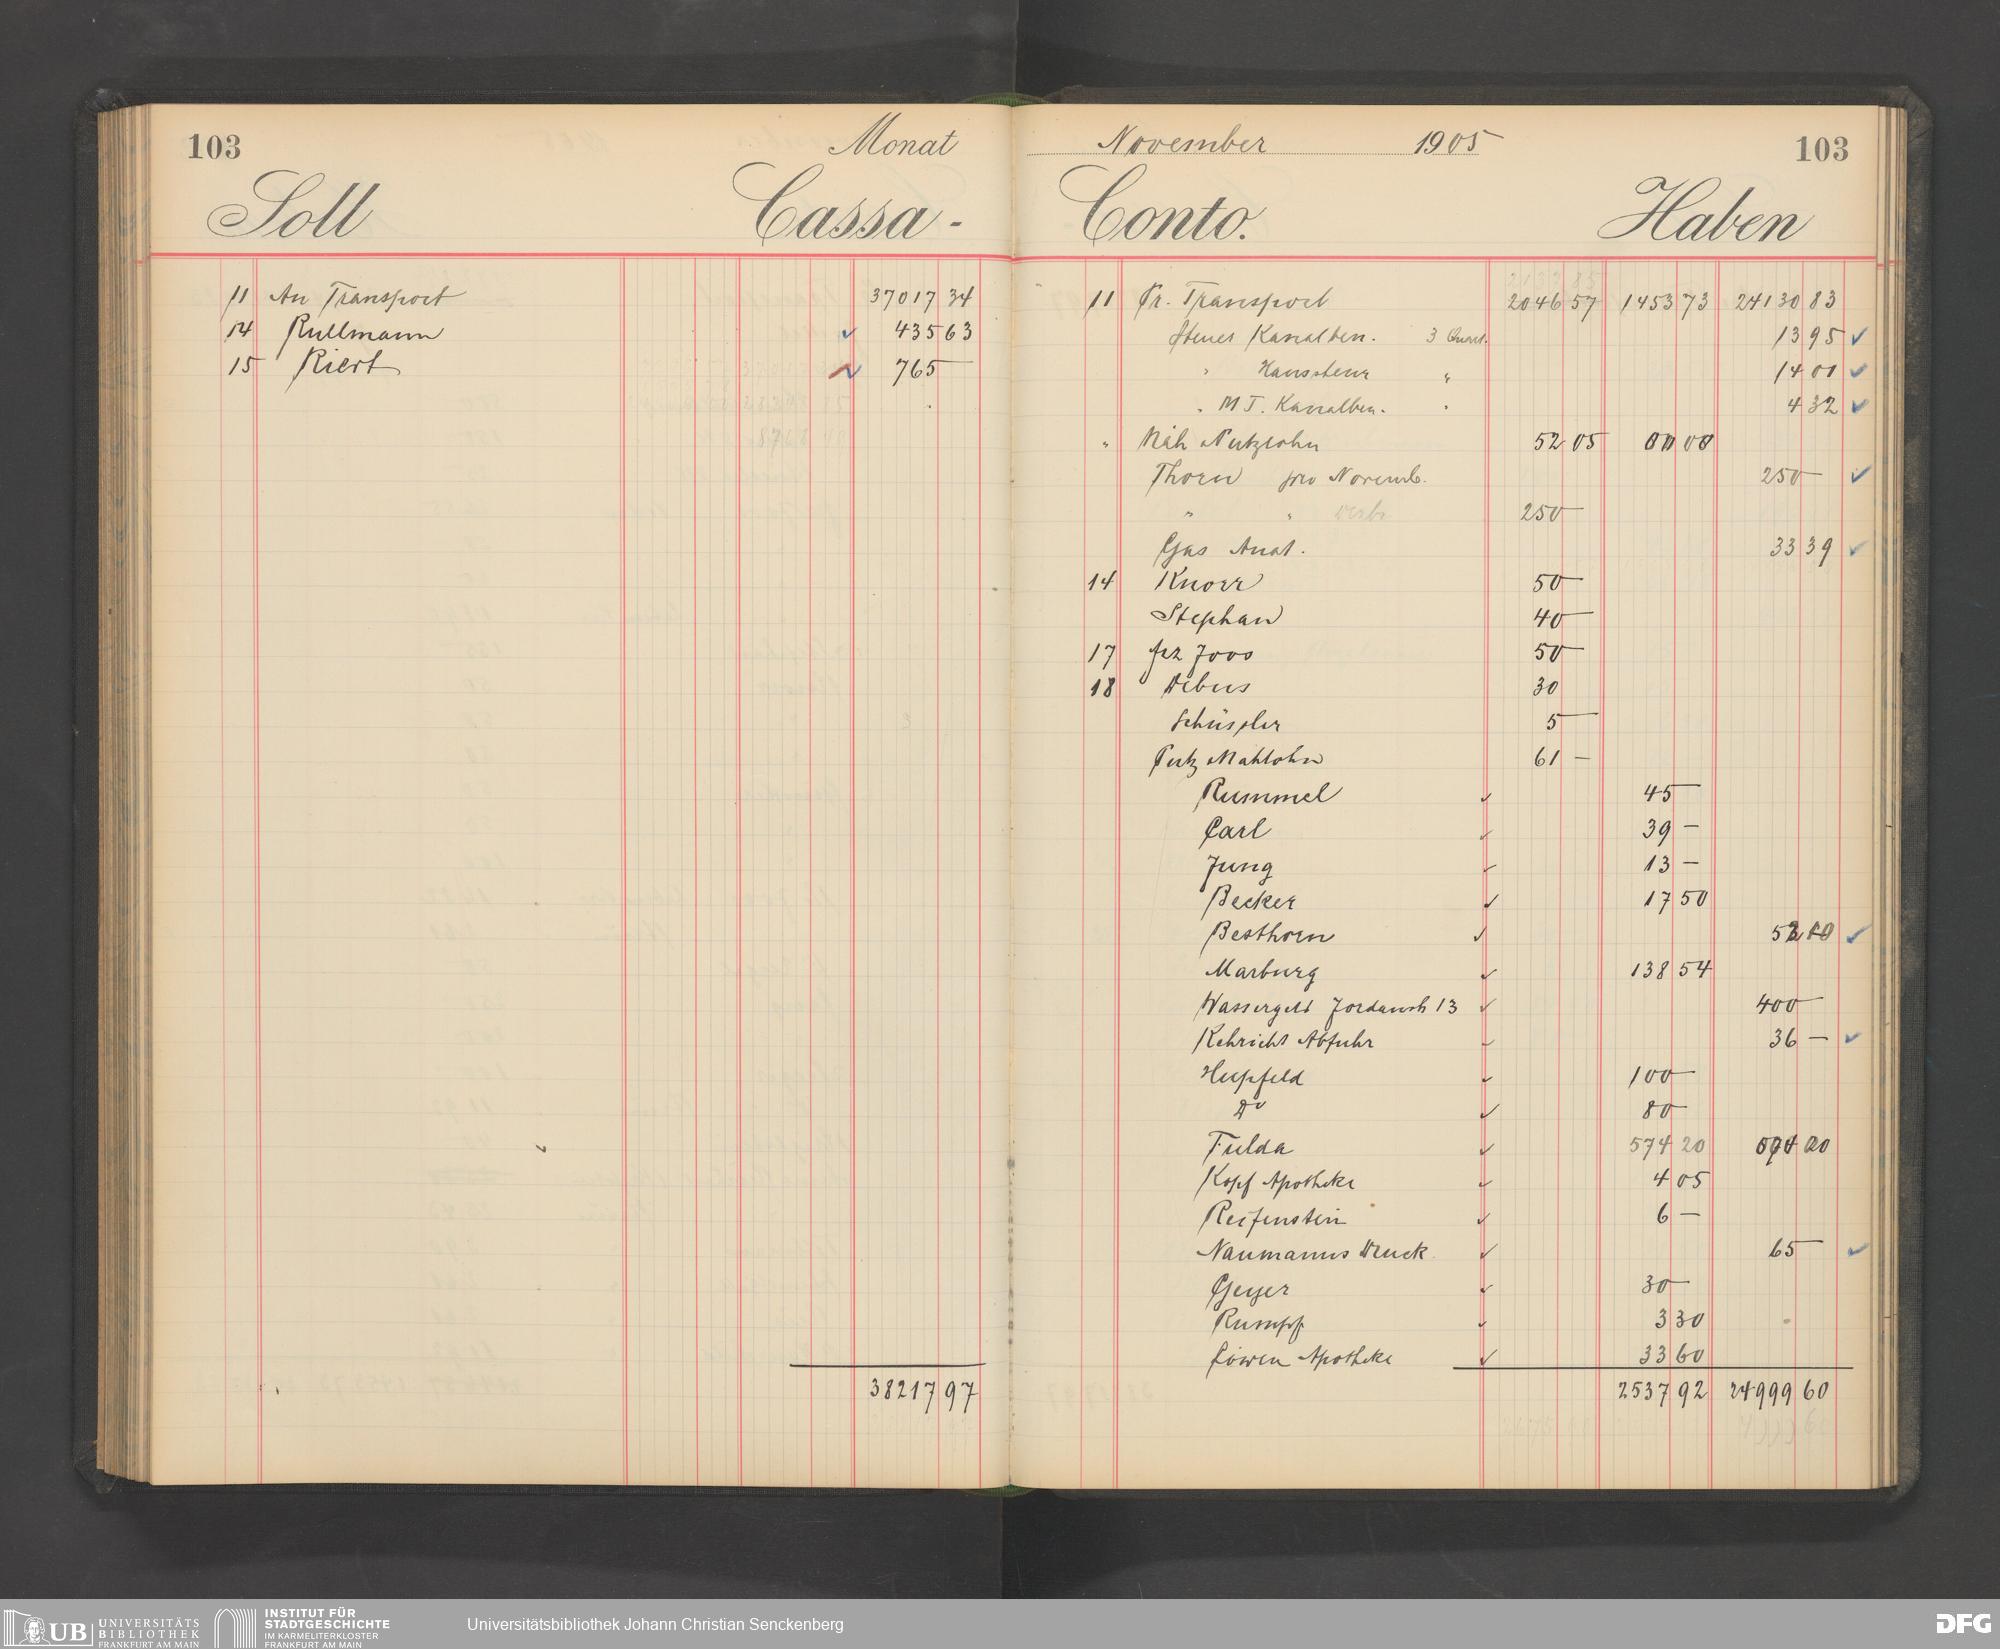 103
Monat
Soll Cassa-
11 An Transport 37017 34
14 Rullmann 435 63
15 Riert 765 —
38217 97
November 1905 103
Conto. Haben
11 Pr. Transport 2046 57 1453 73 24130 83
Steuer Kanalben. 3 Quart. 13 95
" Haussteuer " 14 01
" M T. Kanalben. " 4 32
" Näh Putzlohn 52 05
Thorn pro Novemb. 250 —
" " Dezbr 250 —
Gas Anst. 33 39
14 Knorr 50 —
Stephan 40 —
17 frz Joos 50 —
18 Debus 30
Schüssler 5 —
Putz Nählohn 61 —
Rummel 45 —
Carl 39 —
Jung 13 —
Becker 17 50
Besthorn
Marburg 138 54
Wassergeld Jordanstr 13 400 —
Kehricht Abfuhr 36 —
Hupfeld 100 —
Do 80 —
Fulda 574 20
Kopf Apotheke 4 05
Reifenstein 6 —
Naumanns Druck. 65 —
Geyer 30 —
Rumpf 3 30
Löwen Apotheke 33 60
2537 92 24999 60
UB UNIVERSITÄTS
BIBLIOTHEK
FRANKFURT AM MAIN
INSTITUT FÜR
STADTGESCHICHTE
IM KARMELITERKLOSTER
FRANKFURT AM MAIN
Universitätsbibliothek Johann Christian Senckenberg
DFG